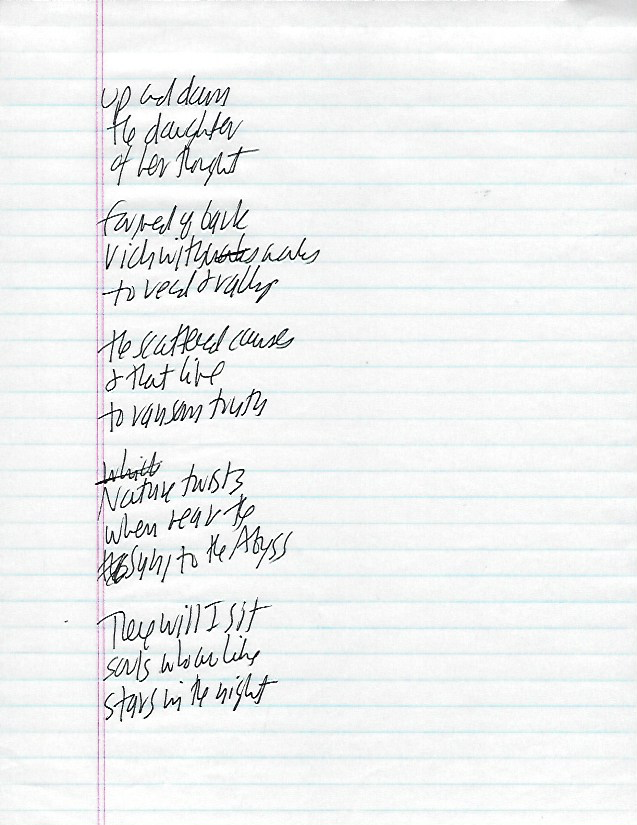 up and down
the daughter
of her thought
formed of bark
rich with walks
to read & rally
the scattered causes
& that live
to ransom truth
Which
Nature twists
when near the
to the Abyss
There will I sit
souls who are like
stars in the night